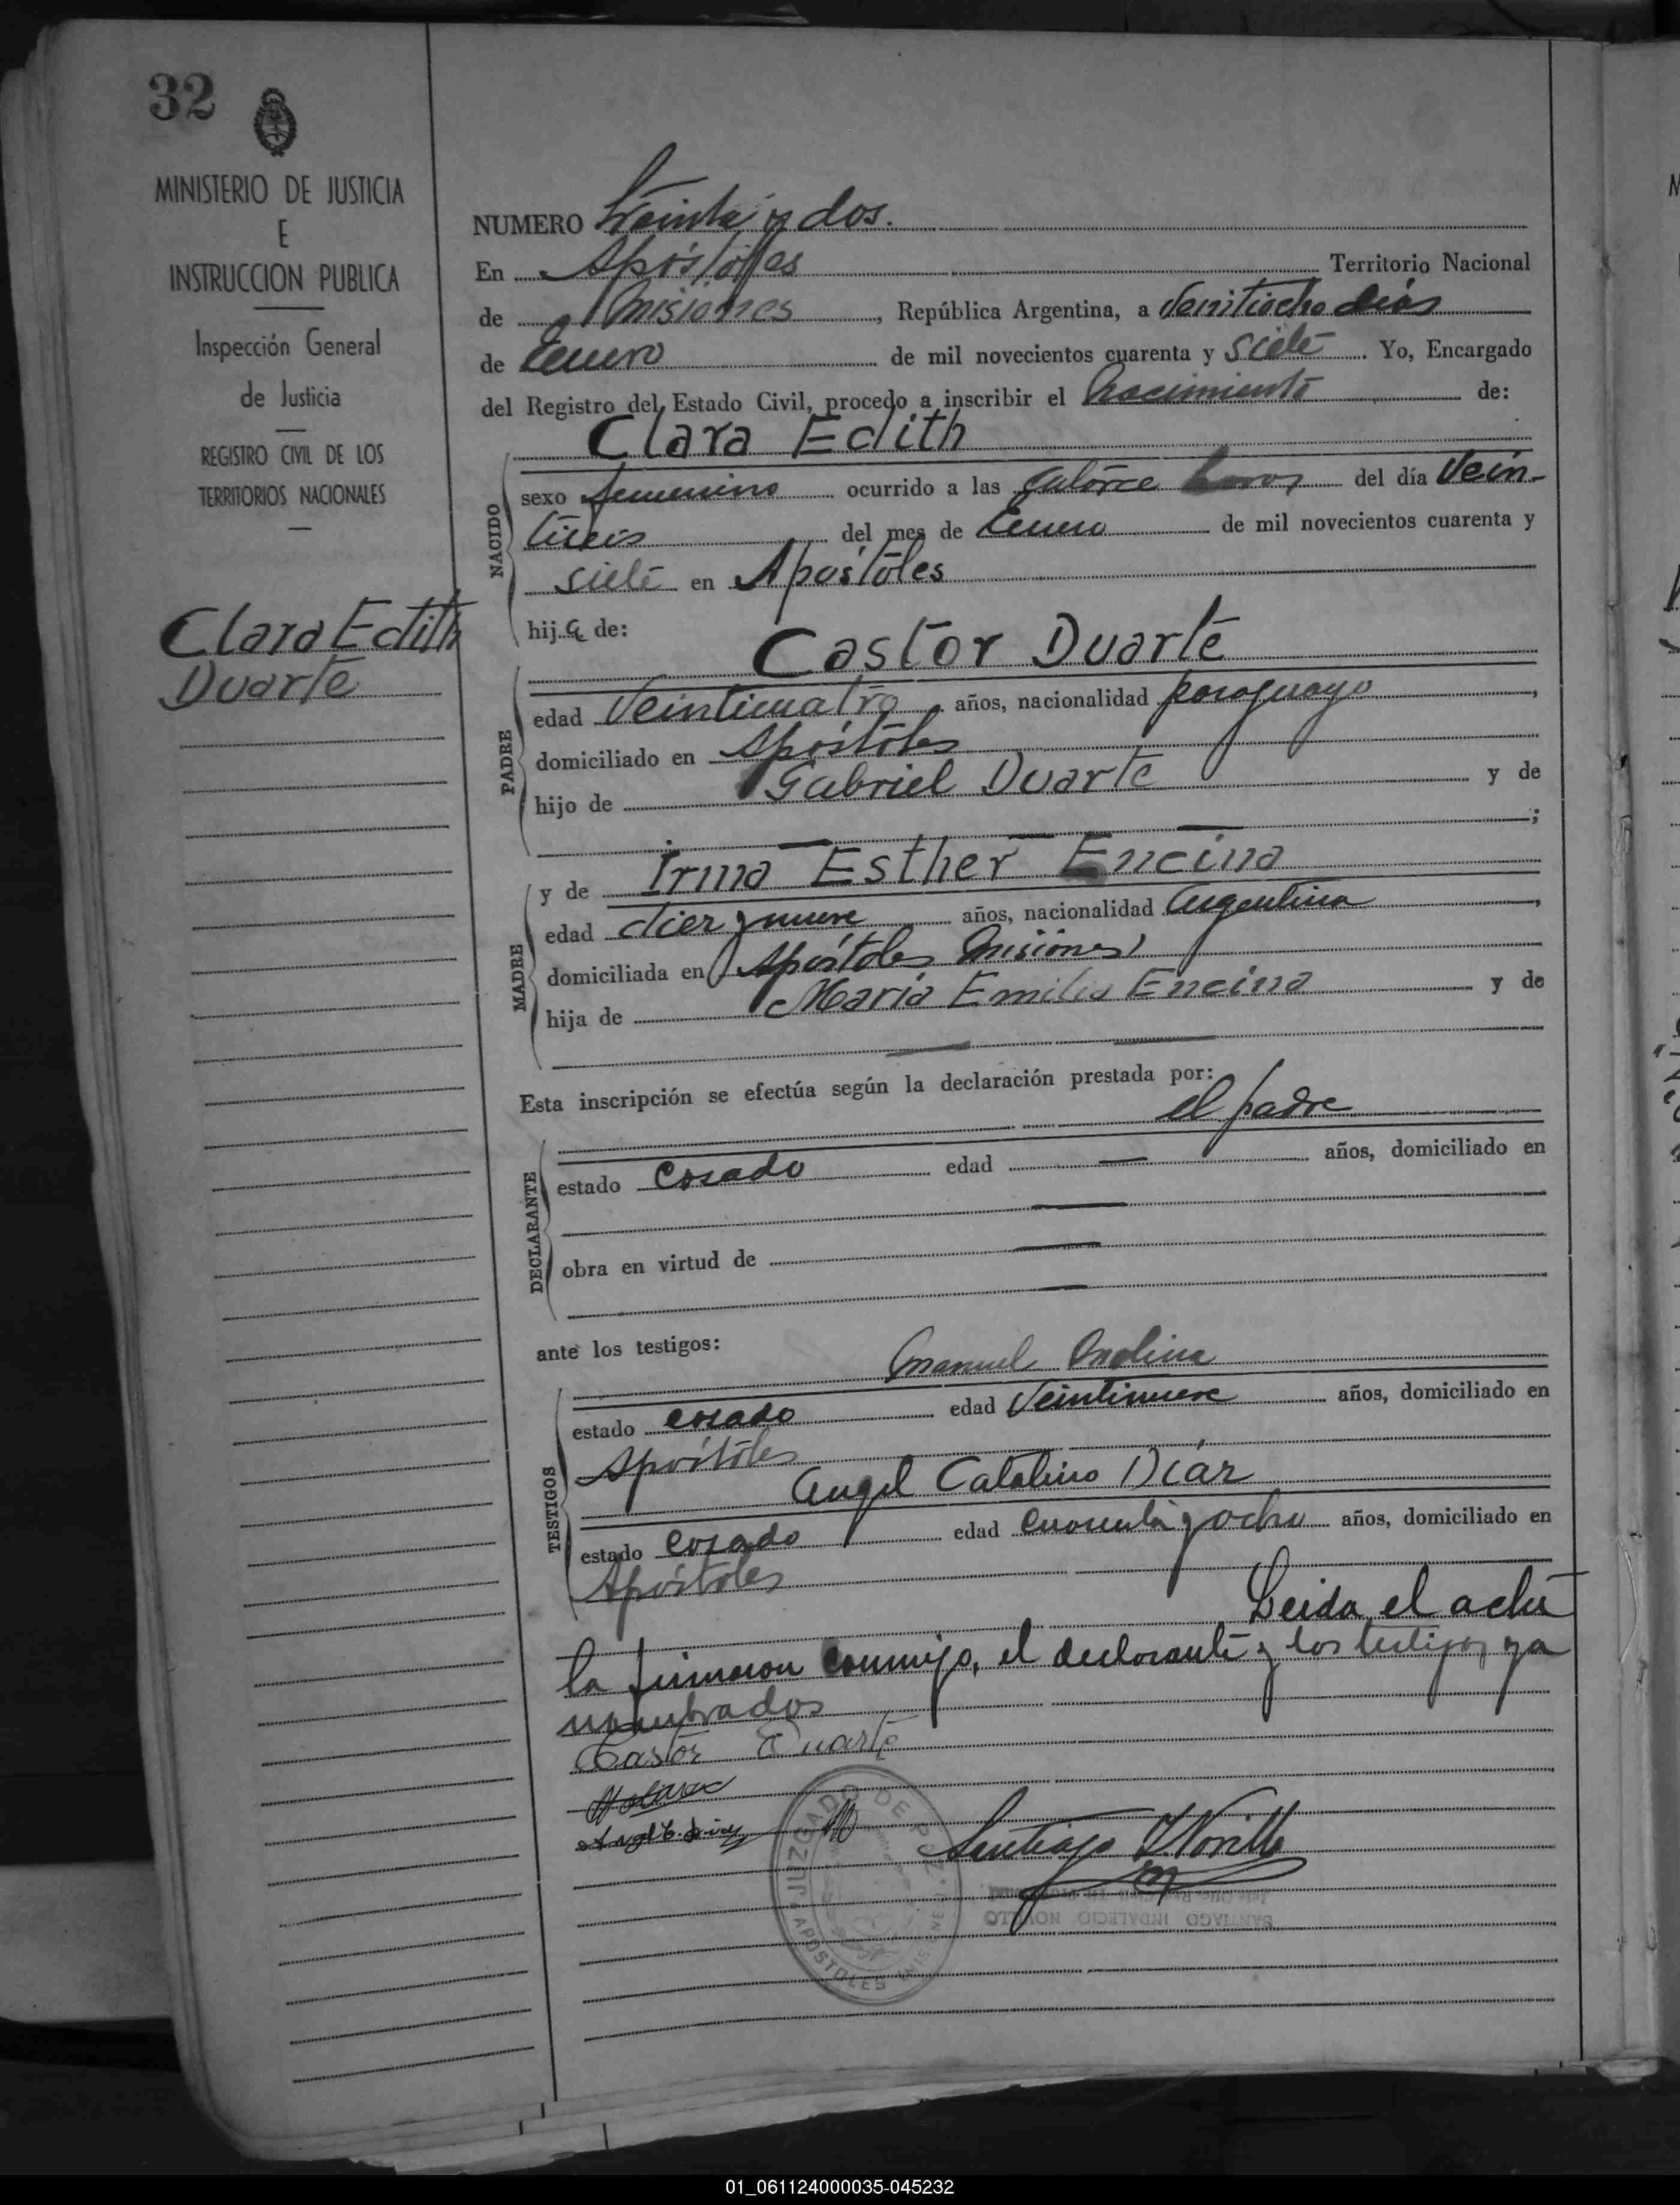 32
MINISTERIO DE JUSTICIA
E
INSTRUCCION PUBLICA
Inspección General
de Justicia
REGISTRO CIVIL DE LOS
TERRITORIOS NACIONALES
Clara Edith
Duarte
NUMERO Treinta y dos.
En Apóstoles Territorio Nacional
de Misiones, República Argentina, a Veintiocho días
de Enero de mil novecientos cuarenta y siete. Yo, Encargado
del Registro del Estado Civil, procedo a inscribir el Nacimiento de:
Clara Edith
NACIDO
sexo femenino ocurrido a las catorce horas del día Vein-
tiseis del mes de Enero de mil novecientos cuarenta y
siete en Apóstoles
hija de:
Castor Duarte
PADRE
edad Veinticuatro años, nacionalidad paraguayo,
domiciliado en Apóstoles
hijo de Gabriel Duarte y de
— — ;
MADRE
y de Irma Esther Encina
edad diez y nueve años, nacionalidad Argentina,
domiciliada en Apóstoles Misiones
hija de Maria Emilia Encina y de
— —
Esta inscripción se efectúa según la declaración prestada por:
el padre
DECLARANTE
estado casado edad — años, domiciliado en
—
obra en virtud de —
—
ante los testigos:
Manuel Molina
TESTIGOS
estado casado edad Veintinueve años, domiciliado en
Apóstoles
Angel Catalino Diaz
estado casado edad cuarenta y ocho años, domiciliado en
Apóstoles
Leida el acta
la firmaron conmigo, el declarante y los testigos ya
nombrados
Castor Duarte
JUZGADO DE PAZ
APOSTOLES (MISIONES)
SANTIAGO INDALECIO NOVILLO
01_061124000035-045232